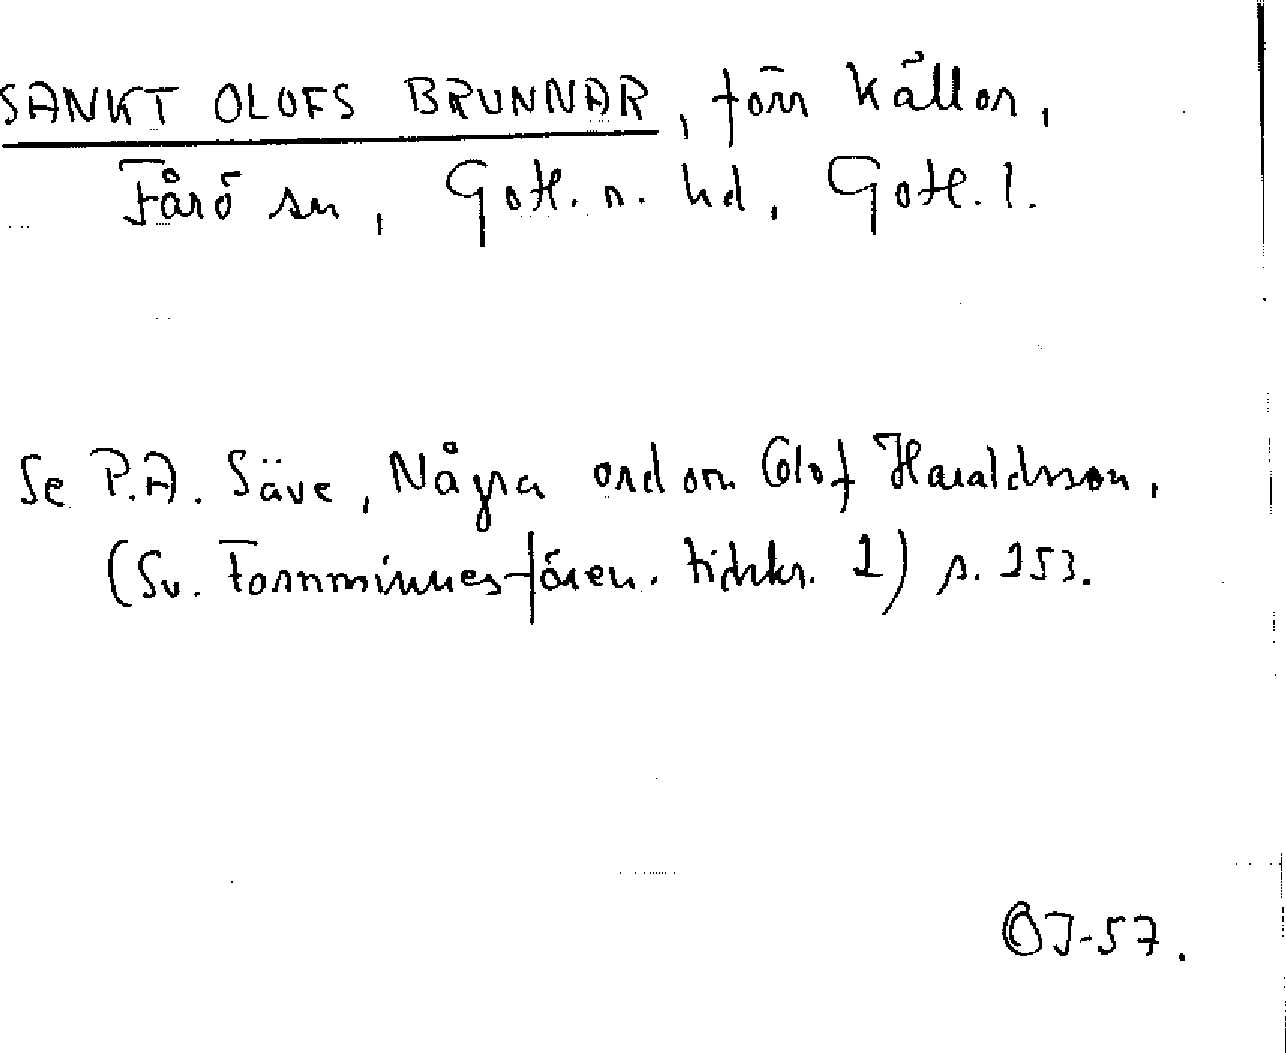 SANKT OLOFS BRUNNAR, förr källor,
Fårö sn, Gotl. n. hd, Gotl. l.
Se P.A. Säve, Några ord om Olof Haraldsson,
(Sv. Fornminnesfören. tidskr. 2) s. 253.
OJ-57.